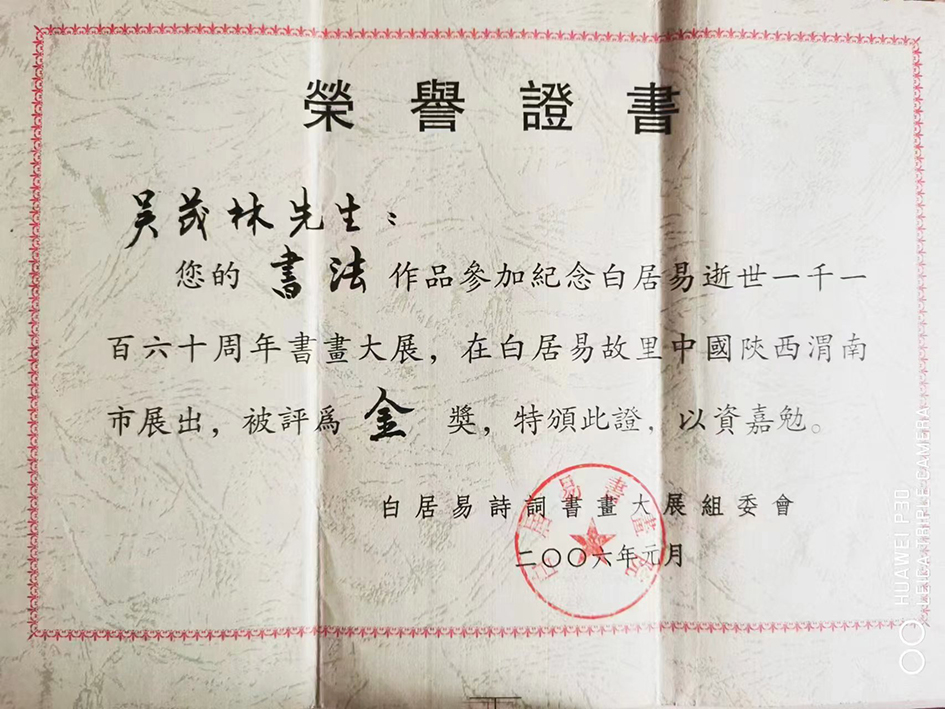 榮譽證書
吴茂林先生：
您的 書法 作品參加紀念白居易逝世一千一
百六十周年書畫大展，在白居易故里中國陝西渭南
市展出，被評爲 金 獎，特頒此證，以資嘉勉。
白居易詩詞書畫大展組委會
二〇〇六年元月
白居易書畫院
HUAWEI P30
LEICA TRIPLE CAMERA